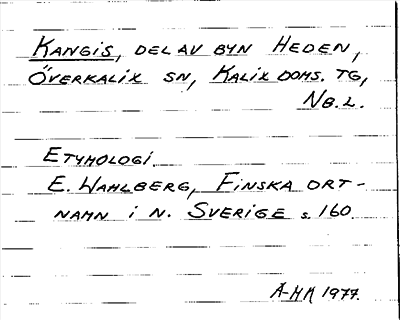 KANGIS, DEL AV BYN HEDEN,
ÖVERKALIX SN, KALIX DOMS. TG,
NB.L.
ETYMOLOGI
E. WAHLBERG, FINSKA ORT-
NAMN I N. SVERIGE s. 160.
A-HK 1977.